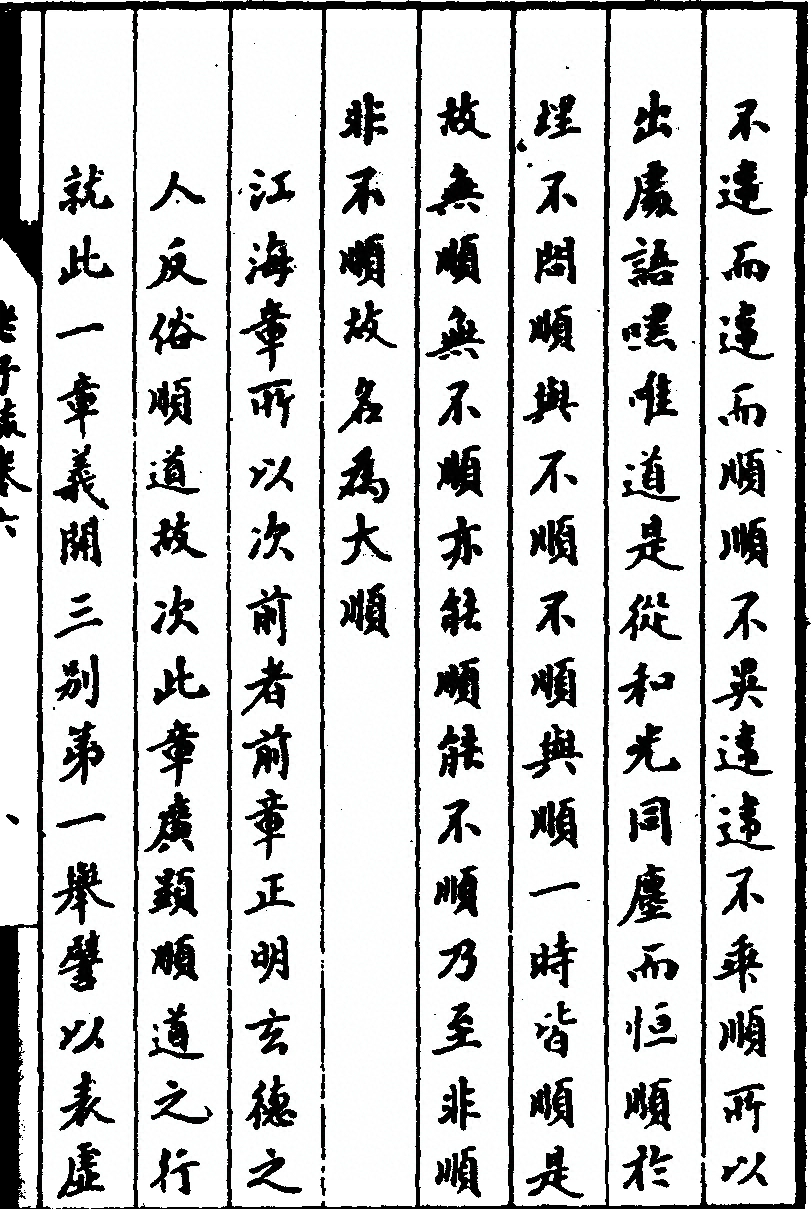 不違而違而順順不異違違不乖順所以
出處語嘿唯道是從和光同塵而恒順於
理不問順與不順不順與順一時皆順是
故無順無不順亦能順能不順乃至非順
非不順故名為大順
江海章所以次前者前章正明玄德之
人反俗順道故次此章廣顯順道之行
就此一章義開三別第一舉譬以表虛
老子疏卷六